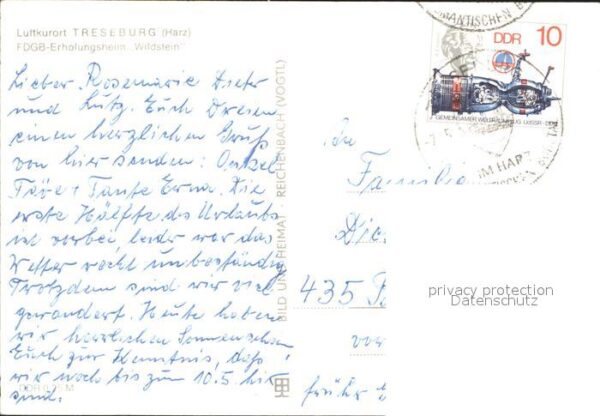 Luftkurort TRESEBURG (Harz)
FDGB-Erholungsheim „Wildstein"
Lieber Rosemarie Dieter
und Lutz. Euch Dreien
einen herzlichen Gruß
von hier senden: Onkel
Täve + Tante Erna. Die
erste Hälfte des Urlaubs
ist vorbei, leider war das
Wetter recht unbeständig
Trotzdem sind wir viel
gewandert. Heute haben
wir herrlichen Sonnenschein
Euch zur Kenntnis, daß
wir noch bis zum 10.5. hier
sind.
DDR 0,25 M
BILD UND HEIMAT REICHENBACH (VOGTL)
MANTISCHEN B
DDR 10
GEMEINSAMER WELTRAUMFLUG UdSSR-DDR
IM HARZ
An
Familie
Die
435
vor
früher
privacy protection
Datenschutz